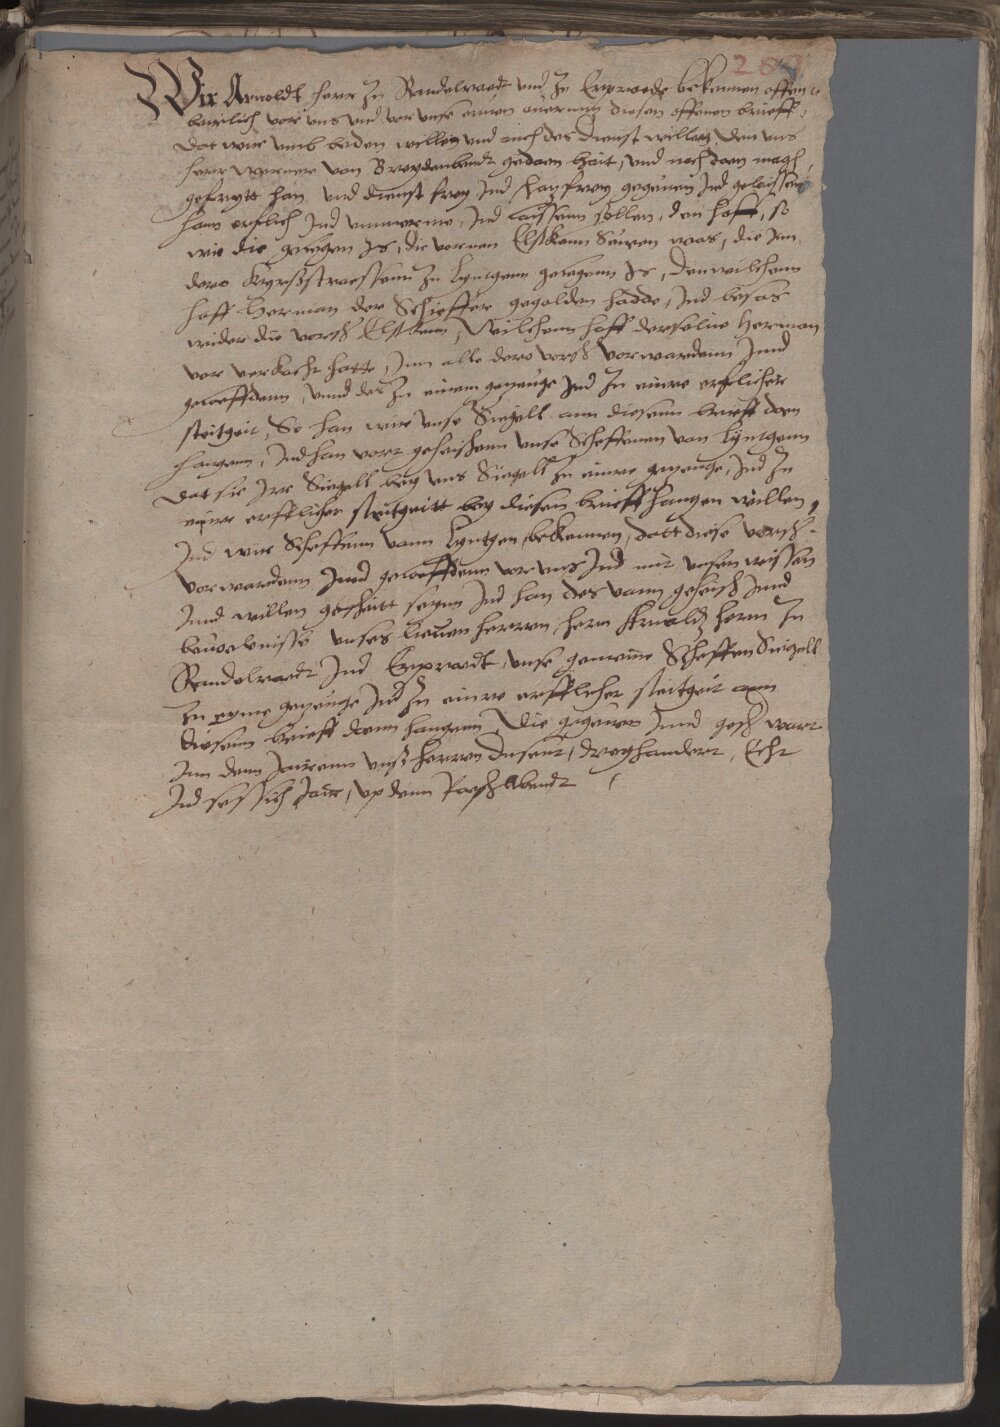 289
Wir Arnoldt herr zu Randelraedt und zu Erprarde bekennen offen
beirlich vor uns und vor unse erven overmitz diesen offenen brieff,
Dat wir umb beden willen und auch des Dienst willen, den uns
herr Werner von Breydenbendt gedaen hait, und noch doen magh,
gefryett han und dienst frey Ind schatzfrey gegeuen Ind gelaissen
hann erflich Ind ummerme, Ind laissenn sollen, den hoff, so
wie die gelegen is, die vornen Elstkenn Suiren was, die Inn
dero Kyrsstraessenn zu Lyntgenn gelegenn is, Denwilchenn
hoff Herman der Scheffer gegolden hadde, Ind besas
wider die vorsch Elstkenn, Wilchenn hoff derselve Herman
vor verkocht hatte, Inn alle dero vorsch vorwardenn Innd
geloeffdenn, unnd des zu einem gezeuge Ind zu einre erflicher
steitgeit, So han wir unse Siegell ann diesenn brieff doen
hangenn, Ind han vort geheischenn unse Scheffenen van Lyntgenn
dat sie Irr Siegell bey uns Siegell zu einre gezeuge, Ind zu
einre erfflicher steitgeitt bey diesen brieff hangen willen,
Ind wir Scheffenn vann Lyntgen, bekennen, datt diese vorsch
vorwardenn Innd geloeffdenn vor uns Ind mit unsen wissen
Innd willen geschiett seynn Ind han des vann geheisch Innd
bevoelnisse unses lieuen herren, hern Arnoldtz herrn zu
Randelraedt Ind Erpraedt, unse gemeine Scheffen Siegell
zu eyme gezeuge Ind zu einre erfflicher steitgeit ann
diesenn brieff doenn hangenn, Die gegeven Innd gesch wart
Inn denn Jairenn unss herren Dusent, dreyhundert, Echt
Ind sessich Jair, up denn Paesch Abendt